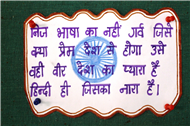 निज भाषा का नहीं गर्व जिसे
क्या प्रेम देश से होगा उसे
वही वीर देश का प्यारा है
हिन्दी ही जिसका नारा है।